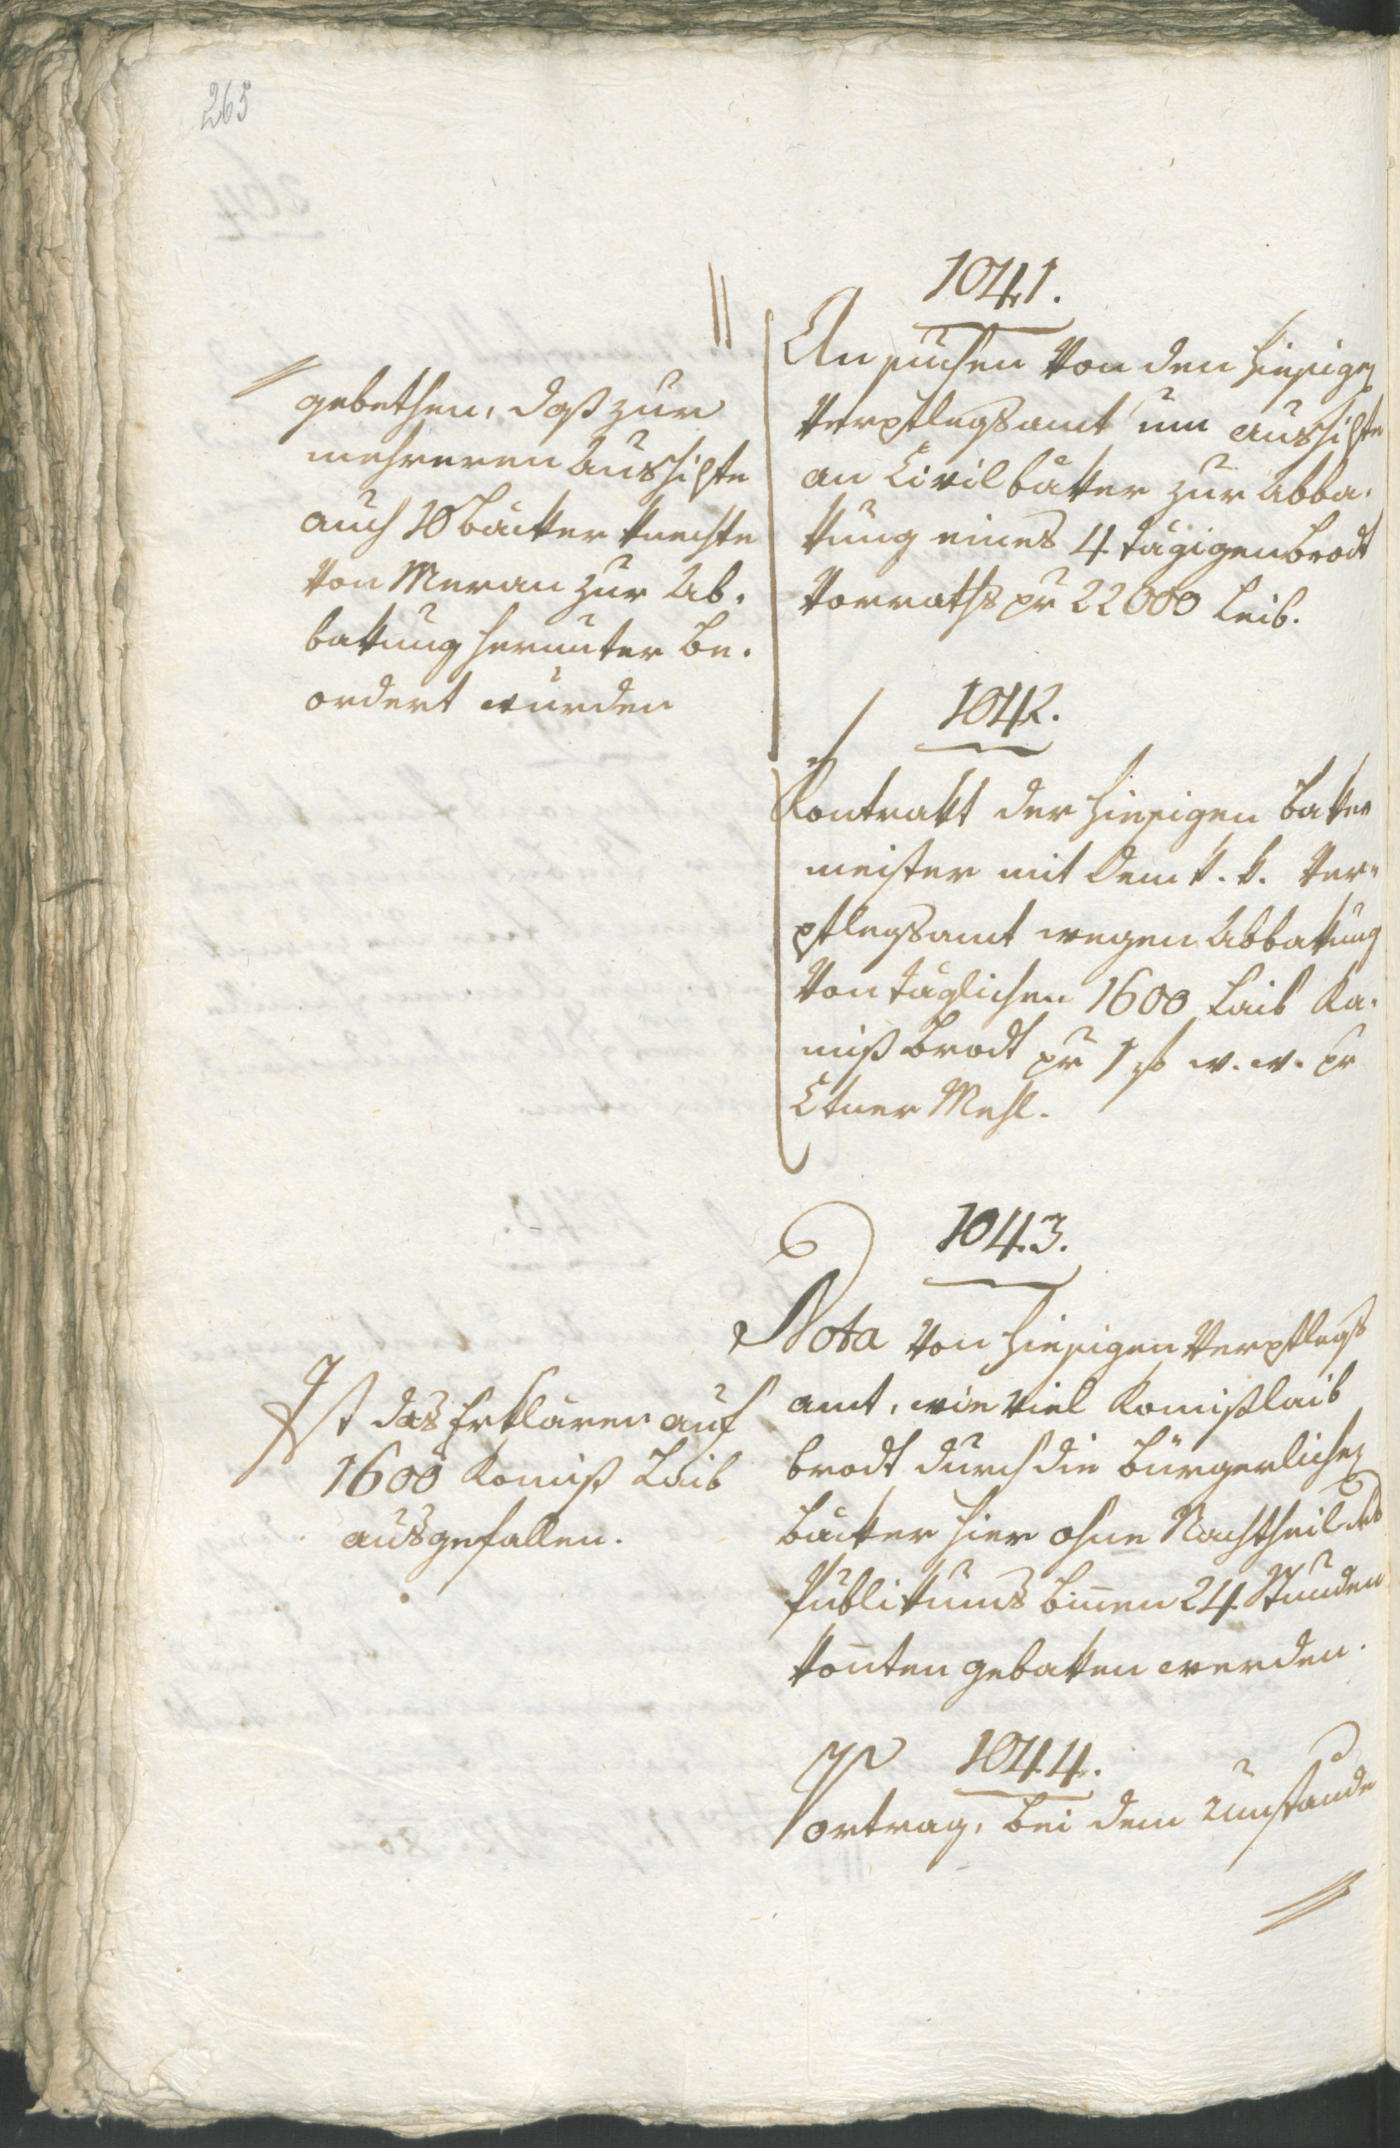 265
1041.
Ansuchen von den hiesigen
Verpflegsamt um aushilfe
an Civilbäker zur Abba-
kung eines 4 tägigen brodt
Vorraths pr 22000 Leib.
gebethen, daß zur
mehreren Aushilfe
auch 20 bäcker knechte
von Meran zur Ab-
bakung herunter be-
ordert wurden
1042.
Kontrakt der hiesigen baker
meister mit dem k. k. Ver-
pflegsamt wegen Abbakung
von täglichen 1600 Laib Ko-
miß brodt pr 1 f w. w. pr
Ctner Mehl.
1043.
Nota von hiesigen Verpflegs
amt, wie viel Komißlaib
brodt durch die bürgerlichen
bäcker hier ohne Nachtheil des
Publikums binnen 24 Stunden
konten gebaken werden.
Ist das Erklären auf
1600 Komiß Laib
ausgefallen.
1044.
Vortrag, bei dem Umstande